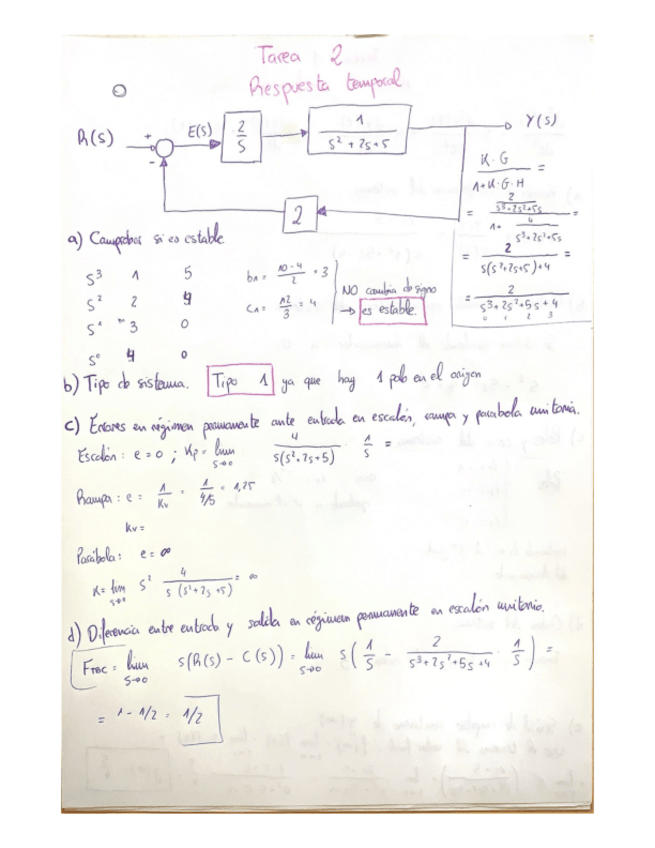 Tarea 2
Respuesta temporal
R(s) + - E(s) 2/s 1/(s²+2s+5) Y(s)
2
K·G/(1+K·G·H) =
= (2/(s³+2s²+5s))/(1+ 4/(s³+2s²+5s)) =
= 2/(s(s²+2s+5)+4) =
= 2/(s³+2s²+5s+4)
0 1 2 3
a) Comprobar si es estable
s³ 1 5
s² 2 4
s¹ 3 0
s⁰ 4 0
b₁ = (10-4)/2 = 3
c₁ = 12/3 = 4
NO cambia de signo
→ es estable.
b) Tipo de sistema. Tipo 1 ya que hay 1 polo en el origen
c) Errores en régimen permanente ante entrada en escalón, rampa y parabola unitaria.
Escalón: e = 0 ; Kp = lim s→0 4/(s(s²+2s+5)) · 1/s =
Rampa: e = 1/Kv = 1/(4/5) = 1,25
Kv =
Parábola: e = ∞
K = lim s→0 s² 4/(s(s²+2s+5)) = ∞
d) Diferencia entre entrada y salida en régimen permanente en escalón unitario.
= lim s→0 s(R(s) - C(s)) = lim s→0 s(1/s - 2/(s³+2s²+5s+4) · 1/s) =
= 1 - 1/2 = 1/2